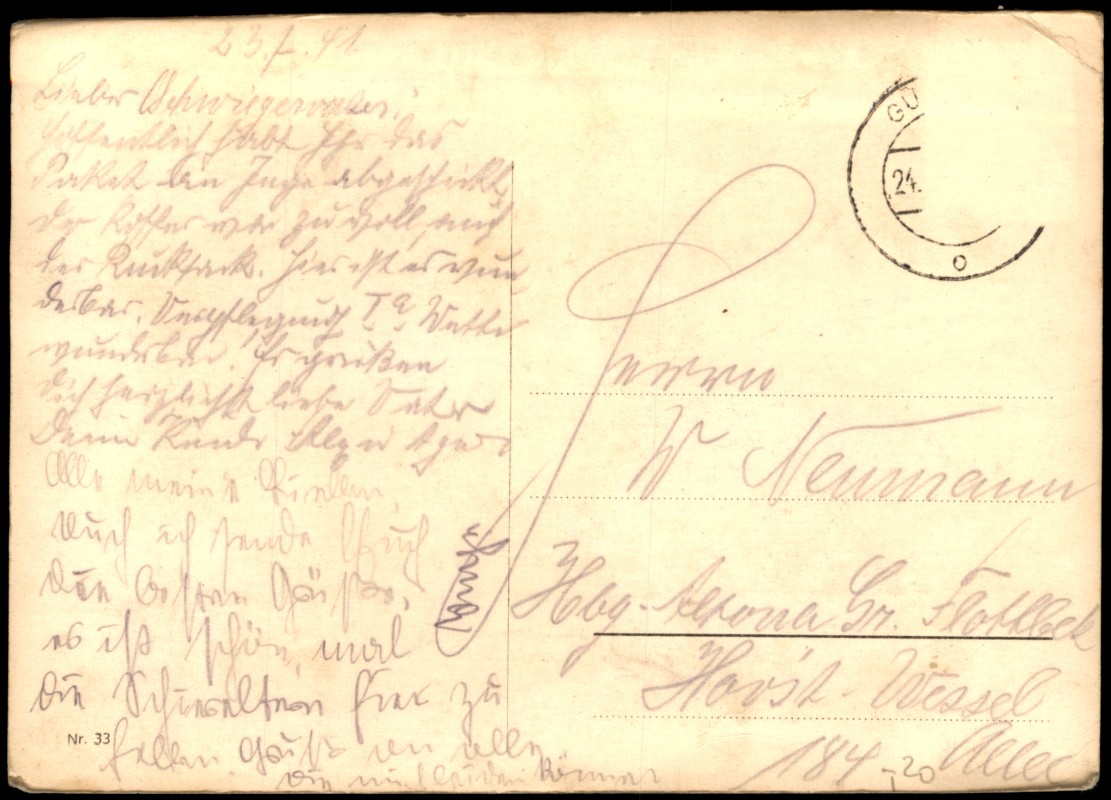 23.7.41
Lieber Schwiegervater!
Hoffentlich habt Ihr das
Paket an Inge abgeschickt,
der Koffer war zu voll, auch
der Rucksack. Hier ist es wun
derbar. Verpflegung Ia Wetter
wunderbar. Es grüßen
Dich herzlichst liebe Vater
Deine Kinder
Alle meine
Auch ich sende Euch
die besten Grüße,
es ist schön, mal
die Schwieltern hier zu
haben Gruß an alle
die mich leiden können
Nr. 33
GU
24.
o
Herrn
W Neumann
Hbg-Altona Gr. Flottbek
Horst-Wessel
184 Allee